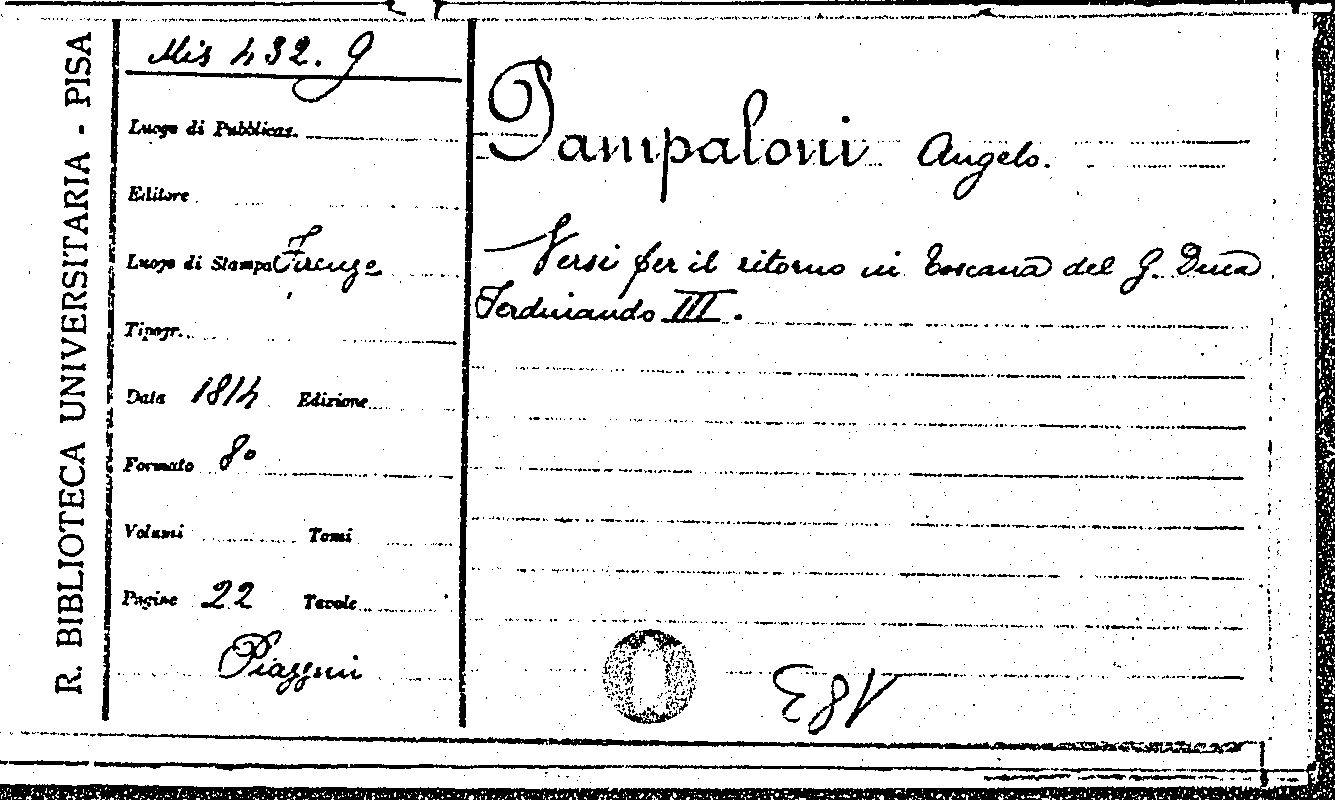 R. BIBLIOTECA UNIVERSITARIA - PISA
Mis 432. 9
Luogo di Pubblicaz.
Editore
Luogo di Stampa Firenze
Tipogr.
Data 1814 Edizione
Formato 8°
Volumi Tomi
Pagine 22 Tavole
Piazzini
Pampaloni Angelo.
Versi per il ritorno in Toscana del G. Duca
Ferdinando III.